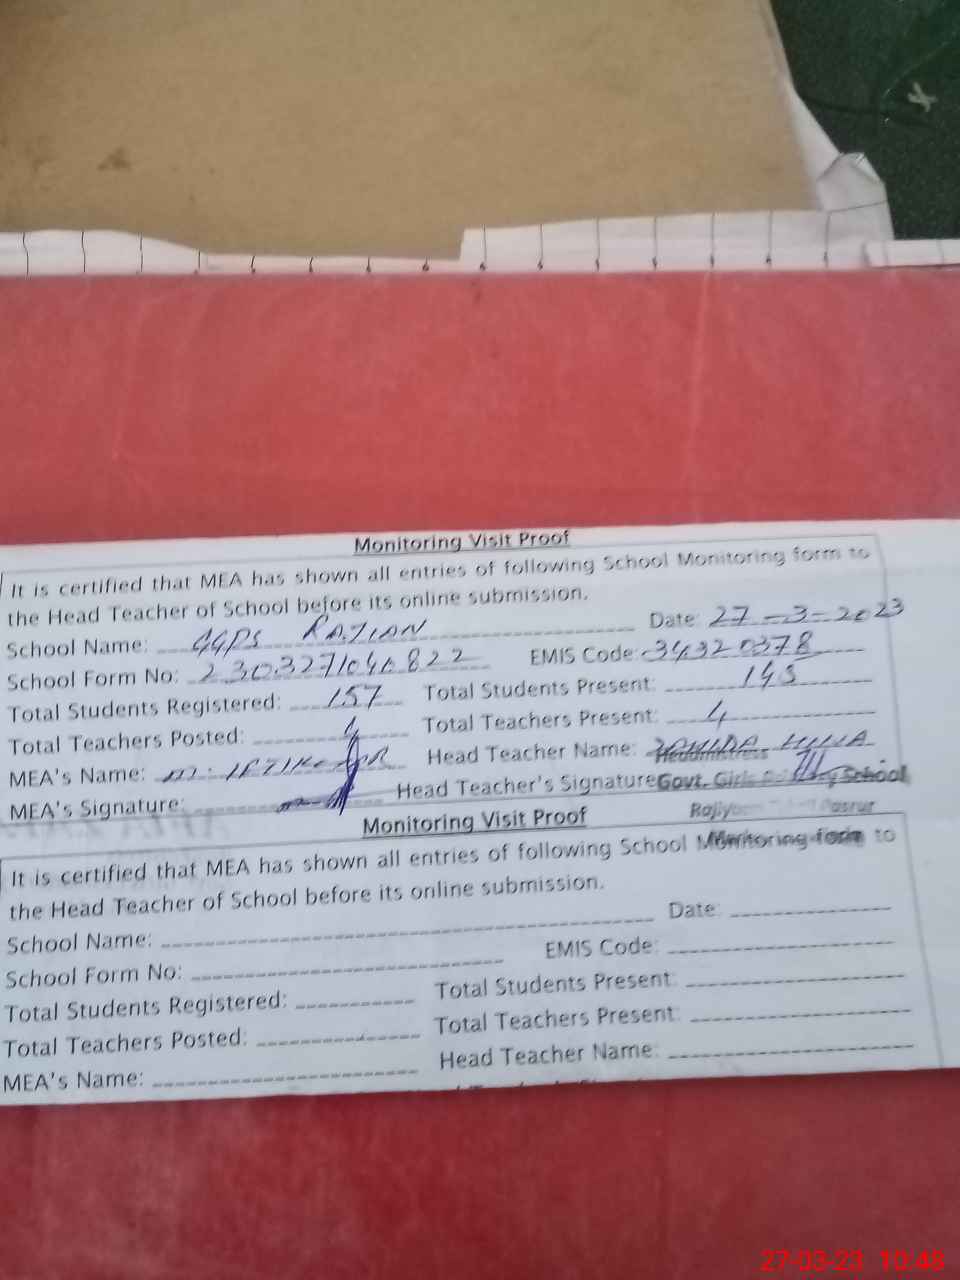 Monitoring Visit Proof
It is certified that MEA has shown all entries of following School Monitoring form to
the Head Teacher of School before its online submission.
School Name: GGPS RAJIAN Date: 27-3-2023
School Form No: 2303271040822 EMIS Code: 34320378
Total Students Registered: 157 Total Students Present: 145
Total Teachers Posted: 4 Total Teachers Present: 4
MEA's Name: Head Teacher Name: HINA
Headmistress
MEA's Signature: Head Teacher's Signature Govt. Girls School
Pasrur
Monitoring Visit Proof
It is certified that MEA has shown all entries of following School Monitoring form to
the Head Teacher of School before its online submission.
School Name: Date:
School Form No: EMIS Code:
Total Students Registered: Total Students Present:
Total Teachers Posted: Total Teachers Present:
MEA's Name: Head Teacher Name:
27-03-23 10:48